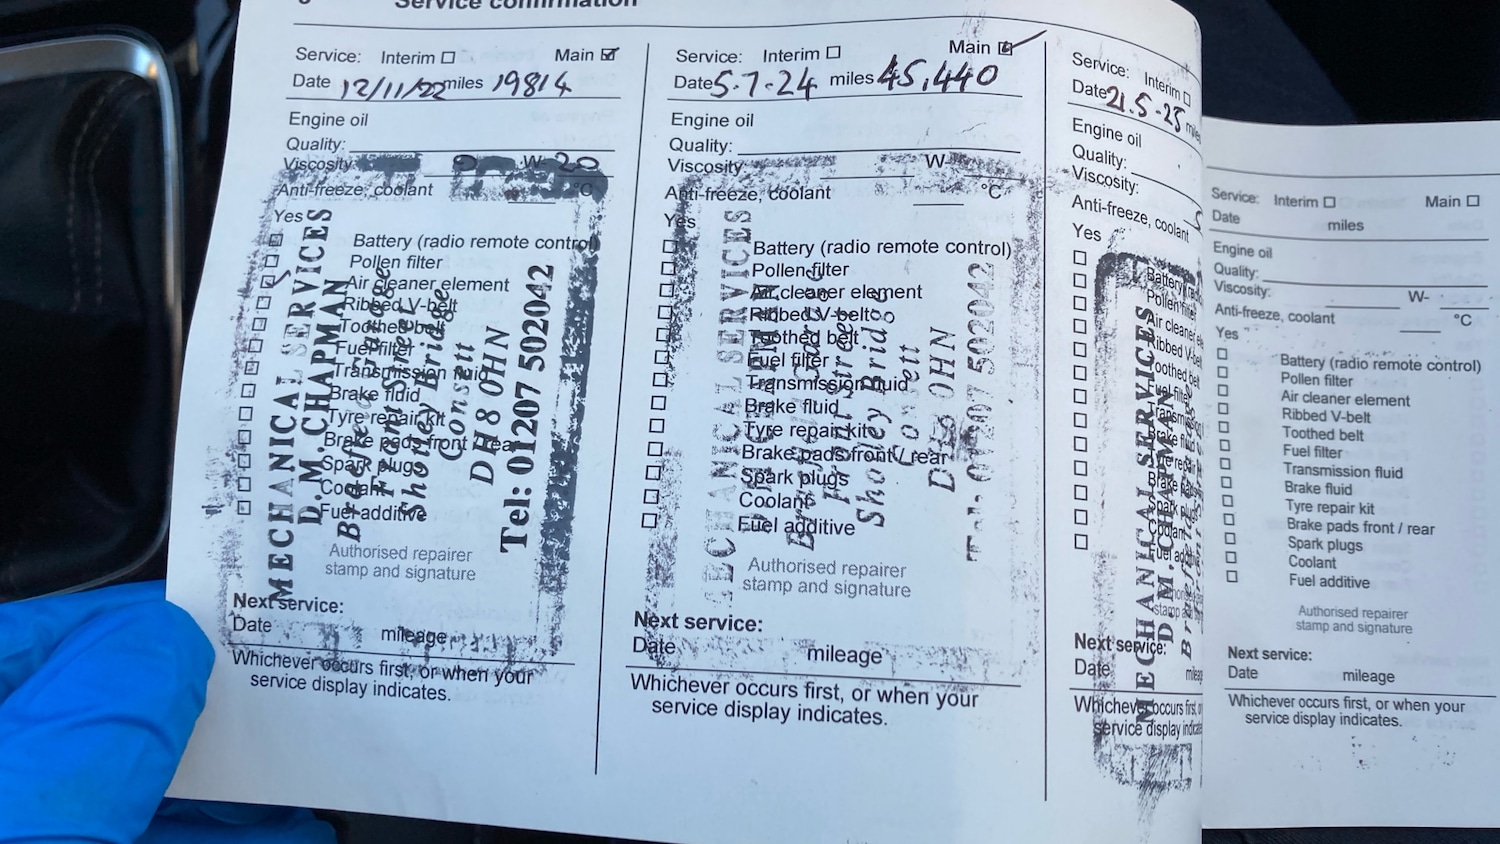 Service confirmation
Service: Interim ☐ Main ☑
Date 12/11/22 miles 19814
Engine oil
Quality:
Viscosity 0 W- 20
Anti-freeze, coolant °C
Yes
Battery (radio remote control)
Pollen filter
Air cleaner element
Ribbed V-belt
Toothed belt
Fuel filter
Transmission fluid
Brake fluid
Tyre repair kit
Brake pads front / rear
Spark plugs
Coolant
Fuel additive
MECHANICAL SERVICES
D.M.CHAPMAN
Front Street
Shotley Bridge
Consett
DH8 0HN
Tel: 01207 502042
Authorised repairer
stamp and signature
Next service:
Date mileage
Whichever occurs first, or when your
service display indicates.
Service: Interim ☐ Main ☑
Date 5.7.24 miles 45,440
Engine oil
Quality:
Viscosity: W-
Anti-freeze, coolant °C
Yes
Battery (radio remote control)
Pollen filter
Air cleaner element
Ribbed V-belt
Toothed belt
Fuel filter
Transmission fluid
Brake fluid
Tyre repair kit
Brake pads front / rear
Spark plugs
Coolant
Fuel additive
MECHANICAL SERVICES
Front Street
Shotley Bridge
Consett
DH8 0HN
Tel: 01207 502042
Authorised repairer
stamp and signature
Next service:
Date mileage
Whichever occurs first, or when your
service display indicates.
Service: Interim ☐
Date 21.5.25 miles
Engine oil
Quality:
Viscosity:
Anti-freeze, coolant
Yes
Battery
Pollen
Air cleaner
Ribbed V-belt
Toothed belt
Fuel filter
Transmission
Brake fluid
Tyre repair
Brake pads
Spark plugs
Coolant
Fuel additive
MECHANICAL SERVICES
D.M.CHAPMAN
Next service:
Date
Whichever occurs first, or
service display indicates
Service: Interim ☐ Main ☐
Date miles
Engine oil
Quality:
Viscosity: W-
Anti-freeze, coolant °C
Yes
Battery (radio remote control)
Pollen filter
Air cleaner element
Ribbed V-belt
Toothed belt
Fuel filter
Transmission fluid
Brake fluid
Tyre repair kit
Brake pads front / rear
Spark plugs
Coolant
Fuel additive
Authorised repairer
stamp and signature
Next service:
Date mileage
Whichever occurs first, or when your
service display indicates.